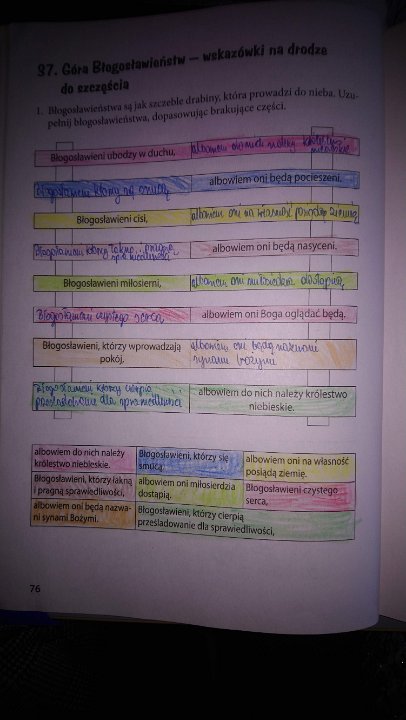 37. Góra Błogosławieństw – wskazówki na drodze
do szczęścia
1. Błogosławieństwa są jak szczeble drabiny, która prowadzi do nieba. Uzu-
pełnij błogosławieństwa, dopasowując brakujące części.
Błogosławieni ubodzy w duchu, albowiem do nich należy królestwo
niebieskie
Błogosławieni którzy się smucą albowiem oni będą pocieszeni.
Błogosławieni cisi, albowiem oni na własność posiądą ziemię
Błogosławieni którzy łakną i pragną
sprawiedliwości albowiem oni będą nasyceni.
Błogosławieni miłosierni, albowiem oni miłosierdzia dostąpią,
Błogosławieni czystego serca, albowiem oni Boga oglądać będą.
Błogosławieni, którzy wprowadzają albowiem oni będą nazwani
pokój, synami bożymi
Błogosławieni którzy cierpią albowiem do nich należy królestwo
prześladowanie dla sprawiedliwości niebieskie.
albowiem do nich należy Błogosławieni, którzy się albowiem oni na własność
królestwo niebieskie. smucą, posiądą ziemię.
Błogosławieni, którzy łakną albowiem oni miłosierdzia Błogosławieni czystego
i pragną sprawiedliwości, dostąpią. serca,
albowiem oni będą nazwa- Błogosławieni, którzy cierpią
ni synami Bożymi. prześladowanie dla sprawiedliwości,
76